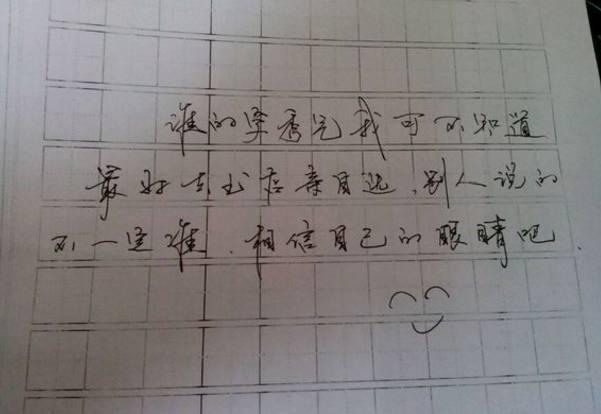 谁的字秀气我可不知道
最好去书店亲自选,别人说的
不一定准.相信自己的眼睛吧.